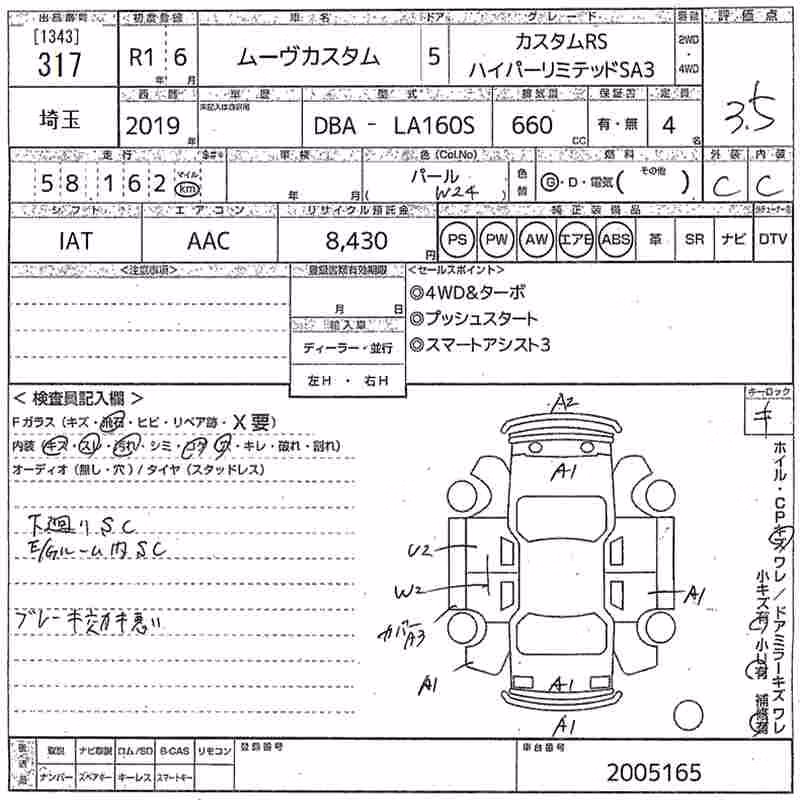 出品番号 初度登録 車名 ドア グレード 評価点
[1343]
317
R1 6
年 月
ムーヴカスタム
5
カスタムRS
ハイパーリミテッドSA3
2WD
・
4WD
3.5
埼玉
西暦 車歴 型式 排気量 保証書 定員
未記入は自家用
2019 年
DBA - LA160S
660 CC
有・無
4 名
走行 車検 色(Col.No) 燃料 外装 内装
58,162 マイル km
年 月
パール
( W24 )
色替
G・D・電気( その他 )
C C
シフト エアコン リサイクル預託金 純正装備品
IAT AAC 8,430 円
PS PW AW エアB ABS 革 SR ナビ DTV
<注意事項> 登録書類有効期限 <セールスポイント>
月 日
輸入車
ディーラー・並行
左H ・ 右H
◎4WD&ターボ
◎プッシュスタート
◎スマートアシスト3
< 検査員記入欄 >
Fガラス (キズ・飛石・ヒビ・リペア跡・X要)
内装 (キズ・スレ・汚れ・シミ・コゲ・穴・キレ・破れ・割れ)
オーディオ (無し・穴) / タイヤ (スタッドレス)
下廻りSC
E/Gルーム内SC
ブレーキ効き悪い
キーロック
キ
A2
A1
U2
W2
カバー
A3
A1
A1
A1
A1
ホイル・CPキズワレ / ドアミラーキズワレ
小キズ有 小U有 補修有
後送品
取説 ナビ取説 ロム/SD B-CAS リモコン
ナンバー スペアキー キーレス スマートキー
登録番号
車台番号
2005165